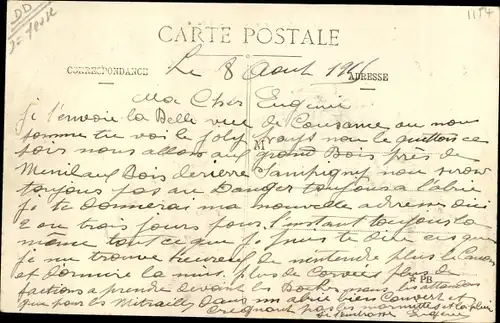 DD
1154
CARTE POSTALE
CORRESPONDANCE
ADRESSE
Le 8 Aout 1916
Ma Cher Eugénie
je t'envoie la Belle vue de Cousance ou nous
somme tu voi le joly pays nou le quittons ce
soir nous allons au grand Bois près de
M
Menil aux Bois derierre Sampigny nou serow
toujours pas au Danger toujours a l'abri
je te donnerai ma nouvelle adresse dici
2 ou trois jours pour l'instant toujours la
mame tout ce que je puis te dire ces que
je me trouve heureux de mentendre plus le canon
et dormire la nuis. plus de Corvées plus de
factions a prendre devant les Boches mais les attendan
PB
que pour les Mitrailles dans un abrie bien Couvert et
Creignant pas les marmittes et la pluie
Eugène